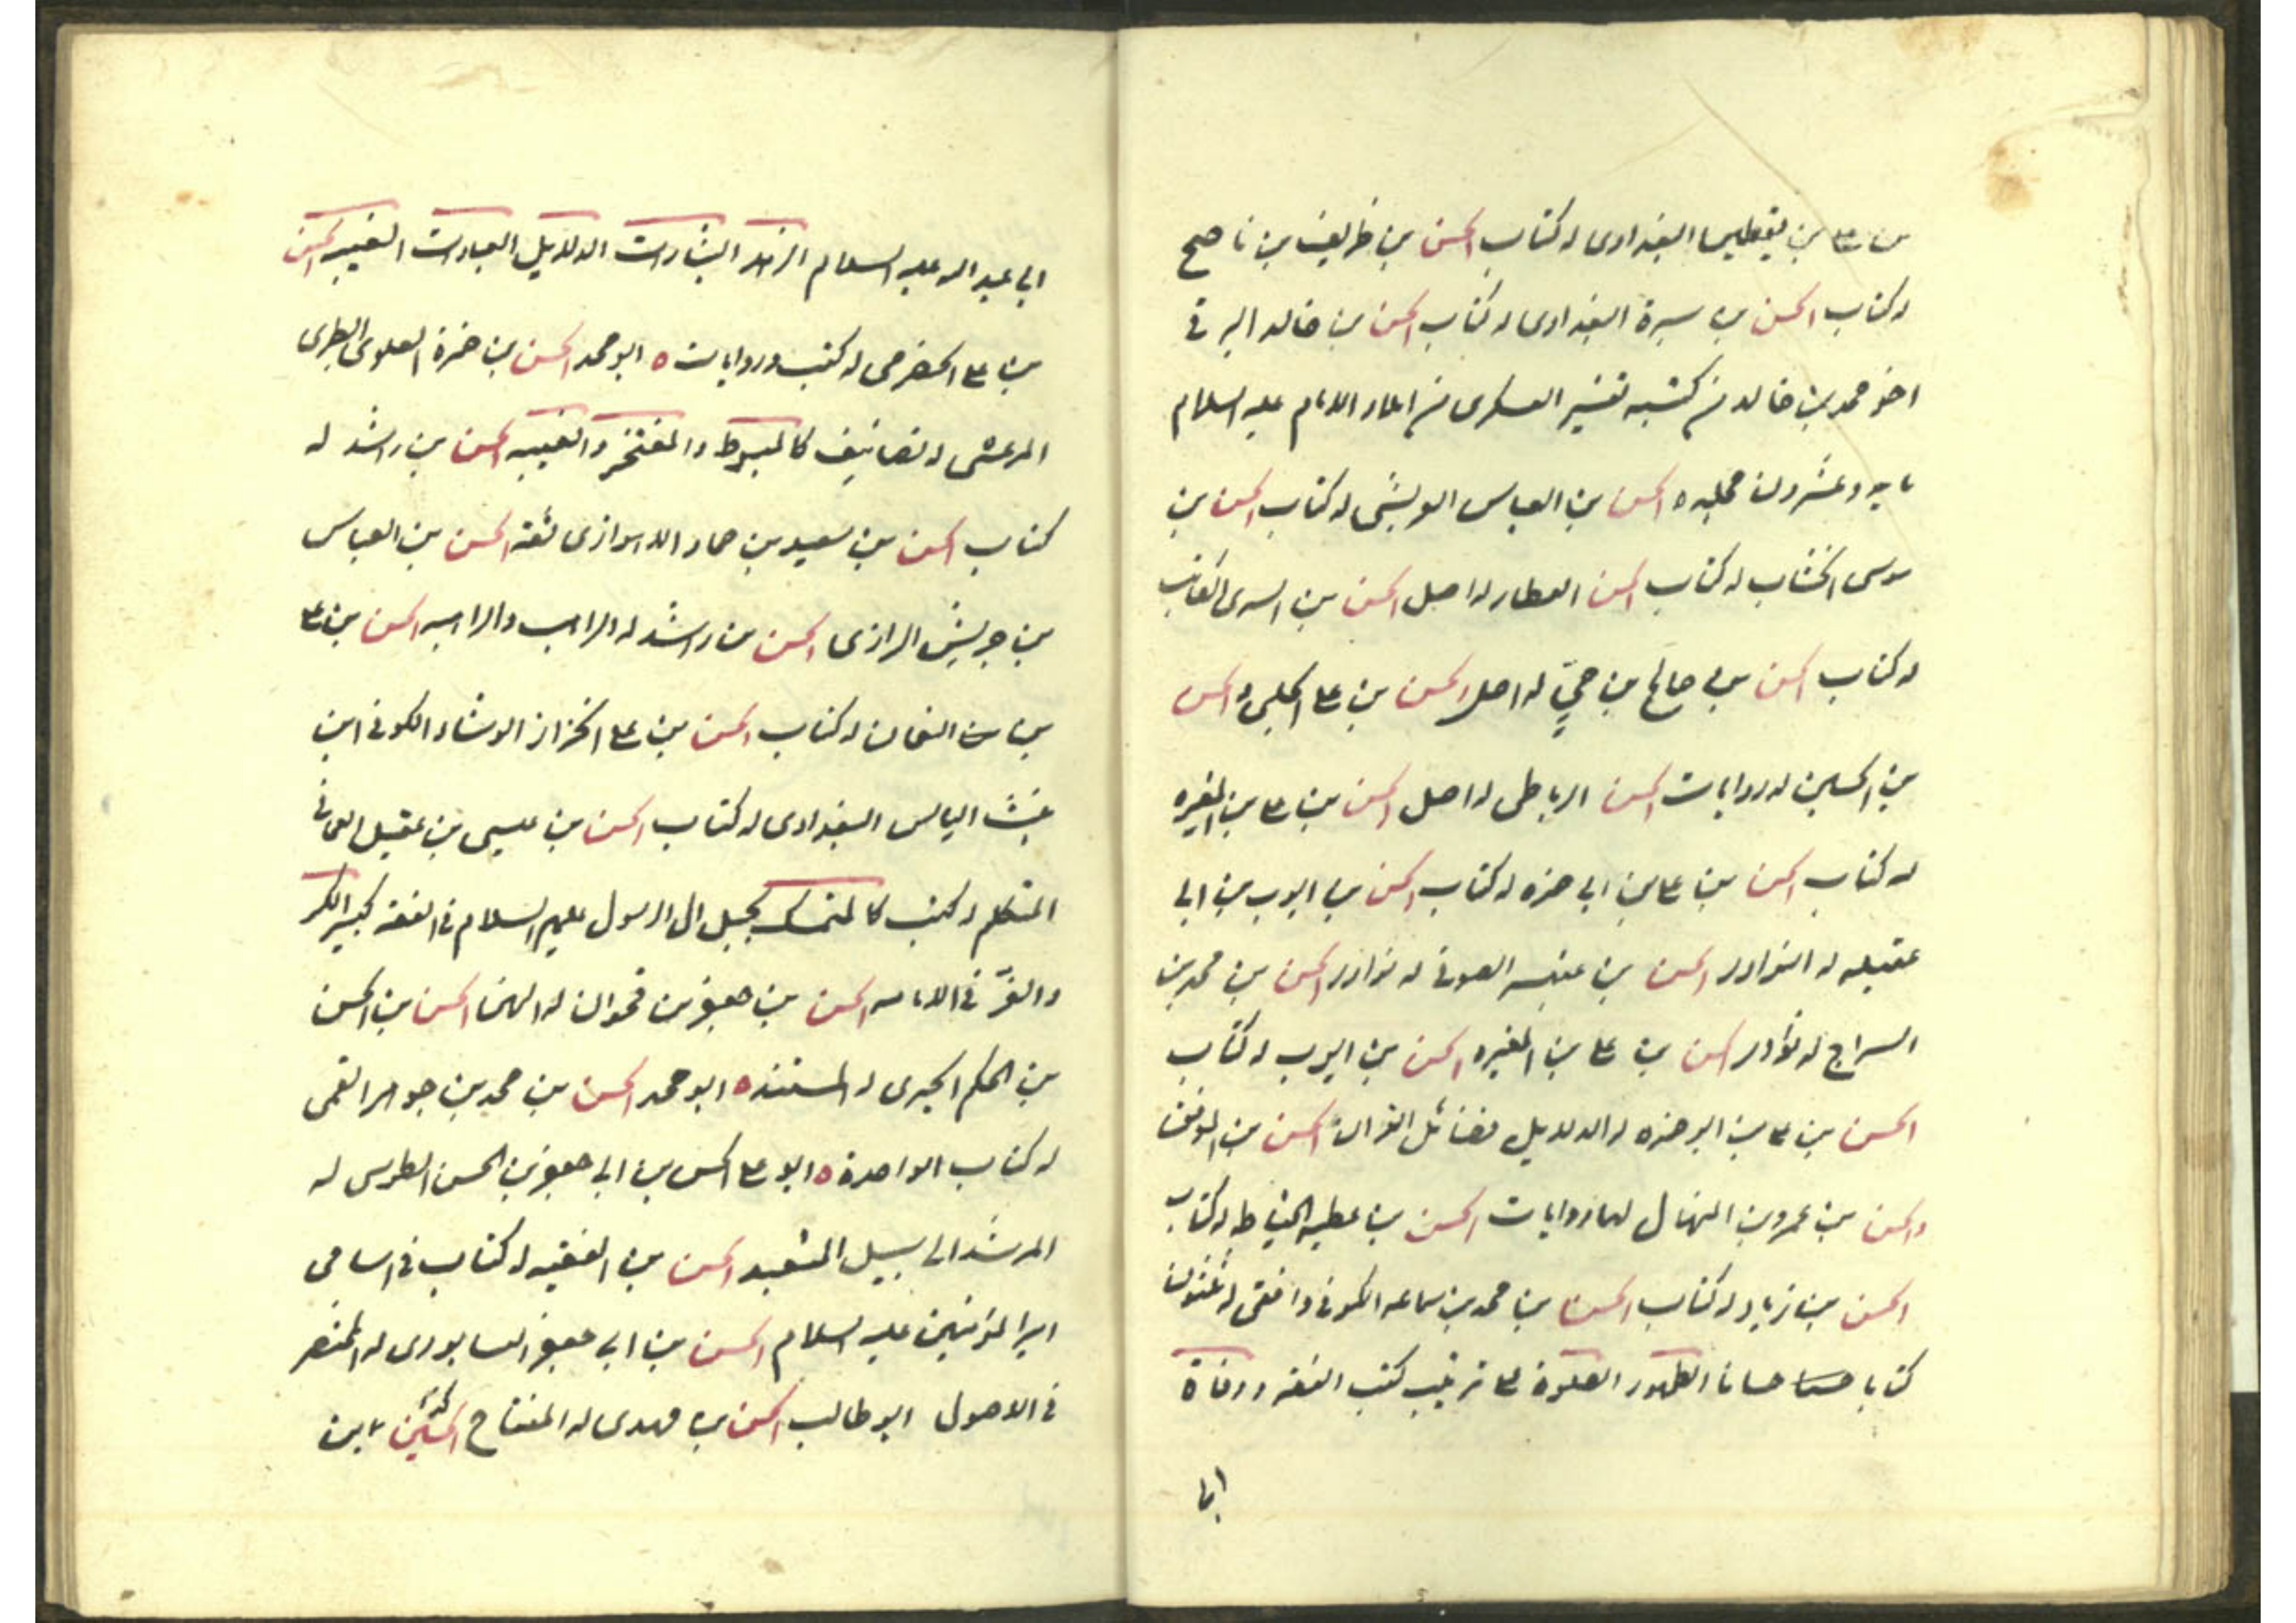 بن علي بن يقطين البغدادى له كتاب الحسن بن ظريف بن ناصح
له كتاب الحسن بن سبرة البغدادى له كتاب الحسن بن خالد البرقى
اخو محمد بن خالد من كتبه تفسير العسكرى من املاء الامام عليه السلام
مايه وعشرون مجلده الحسن بن العباس الحريشى له كتاب الحسن بن
موسى الخشاب له كتاب الحسن العطار له اصل الحسن بن السرى الكاتب
له كتاب الحسن بن صالح بن حيّ له اصل الحسن بن علي الكلبى و الحسن
بن الحسين له روايات الحسن الرباطى له اصل الحسن بن علي بن المغيره
له كتاب الحسن بن علي بن ابى حمزه له كتاب الحسن بن ايوب بن ابى
عقيله له النوادر الحسن بن عنبسه الصوفى له نوادر الحسن بن محمد بن
السراج له نوادر الحسن بن علي بن المغيره الحسن بن ايوب له كتاب
الحسن بن علي بن ابو حمزه له الدلايل فضائل القران الحسن بن الموفق
والحسن بن عمرو بن المنهال لهما روايات الحسن بن عطيه الحناط له كتاب
الحسن بن زياد له كتاب الحسن بن محمد بن سماعه الكوفى واقفى له ثلثون
كتابا حسانا الطهور الصلوة علي ترتيب كتب الفقه ووفاة
ابى
ابى عبد الله عليه السلام الزهد البشارات الدلايل العبادات الغيبه الحسن
بن علي الحضرمى له كتب وروايات ه ابو محمد الحسن بن حمزة العلوى الطبرى
المرعشى له تصانيف كالمبسوط والمفتخر والغيبه الحسن بن راشد له
كتاب الحسن بن سعيد بن حماد الاهوازى ثقة الحسن بن العباس
بن حريش الرازى الحسن بن راشد له الراهب والراهبه الحسن بن علي
بن النعمان له كتاب الحسن بن علي الخزاز الوشاء الكوفى ابن
بنت الياس البغدادى له كتاب الحسن بن عيسى بن عقيل العمانى
المتكلم له كتب كالمتمسك بحبل ال الرسول عليهم السلام فى الفقه كبير الكر
والفرّ فى الامامه الحسن بن جعفر بن الحسن بن الحسن
بن الحكم الحيرى له المسند ه ابو محمد الحسن بن محمد بن جمهور القمى
له كتاب الواحدة ه ابو علي الحسن بن ابى جعفر بن الحسن الطوسى له
المرشد الى سبيل المتعبد الحسن بن الفقيه له كتاب فى اسامى
امير المؤمنين عليه السلام الحسن بن ابى جعفر النيسابورى له المختصر
فى الاصول ابو طالب الحسن بن مهدى له المفتاح الحسين بن